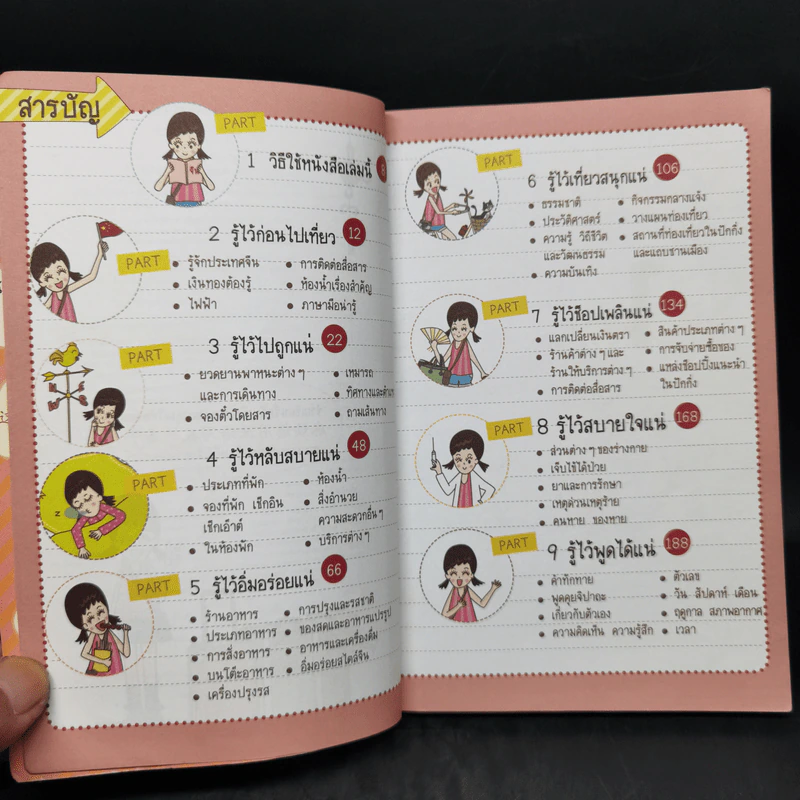 สารบัญ
PART
1 วิธีใช้หนังสือเล่มนี้ 8
PART
2 รู้ไว้ก่อนไปเที่ยว 12
รู้จักประเทศจีน
เงินทองต้องรู้
ไฟฟ้า
การติดต่อสื่อสาร
ห้องน้ำเรื่องสำคัญ
ภาษามือน่ารู้
PART
3 รู้ไว้ไปถูกแน่ 22
ยวดยานพาหนะต่าง ๆ
และการเดินทาง
จองตั๋วโดยสาร
เหมารถ
ทิศทางและตำแ
ถามเส้นทาง
PART
4 รู้ไว้หลับสบายแน่ 48
ประเภทที่พัก
จองที่พัก เช็กอิน
เช็กเอ้าต์
ในห้องพัก
ห้องน้ำ
สิ่งอำนวย
ความสะดวกอื่น ๆ
บริการต่าง ๆ
PART
5 รู้ไว้อิ่มอร่อยแน่ 66
ร้านอาหาร
ประเภทอาหาร
การสั่งอาหาร
บนโต๊ะอาหาร
เครื่องปรุงรส
การปรุงและรสชาติ
ของสดและอาหารแปรรูป
อาหารและเครื่องดื่ม
อิ่มอร่อยสไตล์จีน
PART
6 รู้ไว้เที่ยวสนุกแน่ 106
ธรรมชาติ
ประวัติศาสตร์
ความรู้ วิถีชีวิต
และวัฒนธรรม
ความบันเทิง
กิจกรรมกลางแจ้ง
วางแผนท่องเที่ยว
สถานที่ท่องเที่ยวในปักกิ่ง
และแถบชานเมือง
PART
7 รู้ไว้ช็อปเพลินแน่ 134
แลกเปลี่ยนเงินตรา
ร้านค้าต่าง ๆ และ
ร้านให้บริการต่าง ๆ
การติดต่อสื่อสาร
สินค้าประเภทต่าง ๆ
การจับจ่ายซื้อของ
แหล่งช็อปปิ้งแนะนำ
ในปักกิ่ง
PART
8 รู้ไว้สบายใจแน่ 168
ส่วนต่าง ๆ ของร่างกาย
เจ็บไข้ได้ป่วย
ยาและการรักษา
เหตุด่วนเหตุร้าย
คนหาย ของหาย
PART
9 รู้ไว้พูดได้แน่ 188
คำทักทาย
พูดคุยจิปาถะ
เกี่ยวกับตัวเอง
ความคิดเห็น ความรู้สึก
ตัวเลข
วัน สัปดาห์ เดือน
ฤดูกาล สภาพอากาศ
เวลา